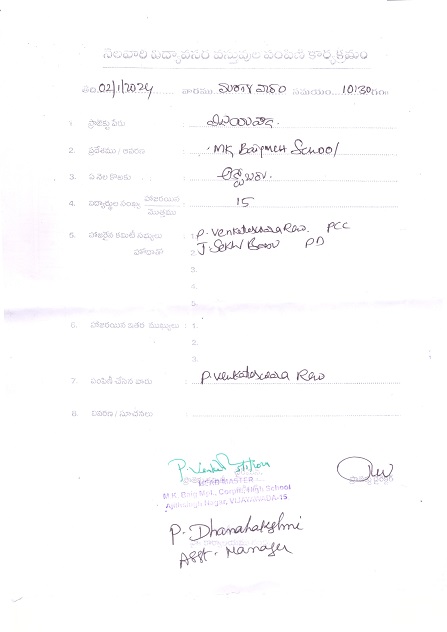 నెలవారి విద్యావసర వస్తువుల పంపిణి కార్యక్రమం
తేది 02/1/2024 వారము మంగళవారం సమయం 10:30గం
1. ప్రాజెక్టు పేరు విజయవాడ.
2. ప్రదేశము / ఆవరణ MK School
3. ఏ నెల కొరకు అక్టోబరు.
4. విద్యార్థుల సంఖ్య హాజరయిన 15
మొత్తము
5. హాజరైన కమిటీ సభ్యులు : 1. P. Venkateswara Rao PCC
2. J. Sekhar Babu PD
3.
4.
5.
6. హాజరయిన ఇతర ముఖ్యులు : 1.
2.
3.
7. పంపిణీ చేసిన వారు P. Venkateswara Rao
8. వివరణ / సూచనలు
HEAD MASTER
M.K. Baig Mpl. Corptn. High School
Nagar, VIJAYAWADA-15
P. Dhanalakshmi
Asst. Manager